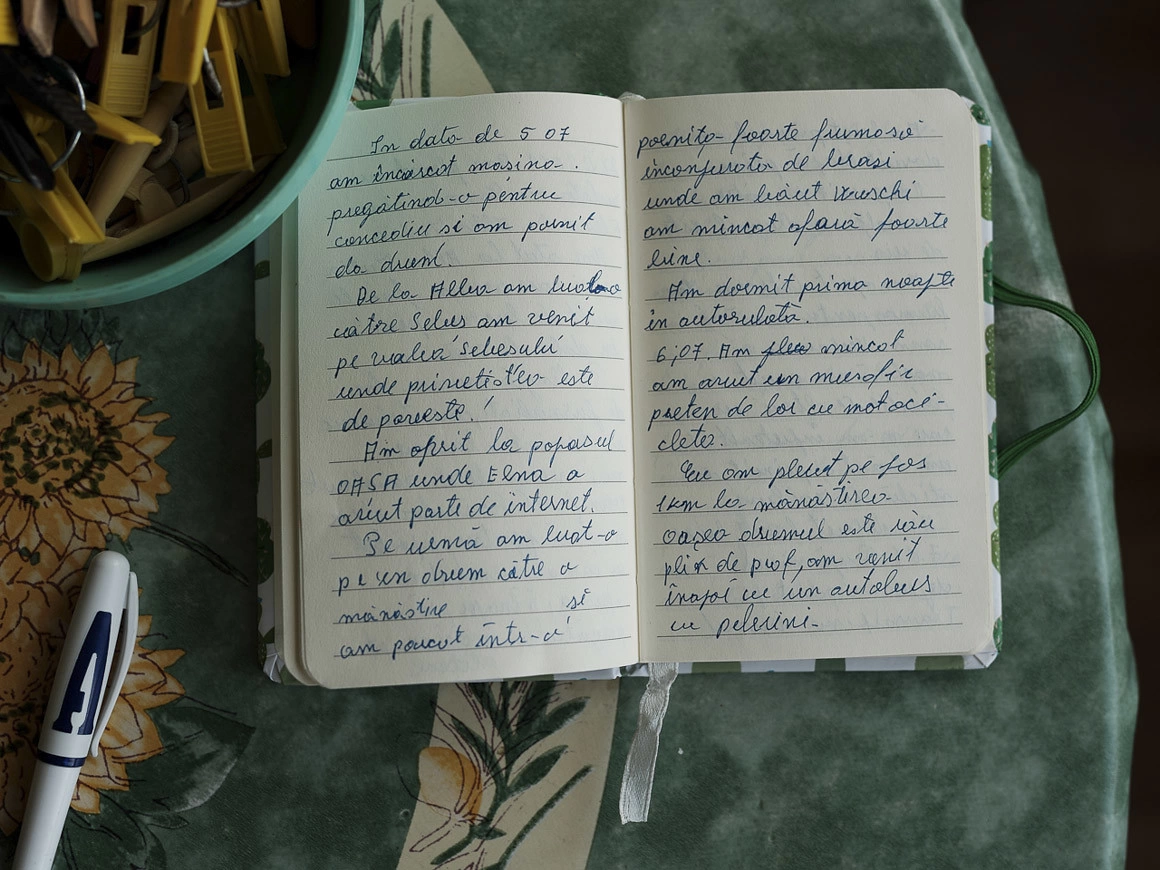 In data de 5 07
am încărcat masina.
pregătind-o pentru
concediu si am pornit
la drum.
De la Alba am luat
către Sebes am venit
pe valea Sebesului
unde este
de poveste!
Am oprit la popasul
OASA unde Elna a
avut parte de internet.
Pe urmă am luat-o
pe un drum către o
mănăstire si
am parcat într-o
poenita foarte frumosă
inconjurata de brasi
unde am băut
am mincat afară foarte
bine.
Am dormit prima noapte
în autorulota.
6;07. Am mincat
am avut un
prieten de lor cu motoci-
cleta.
Eu am plecat pe jos
1km la mănăstirea
oașea drumul este rău
plin de praf, am venit
înapoi cu un autobus
cu pelerini.
A